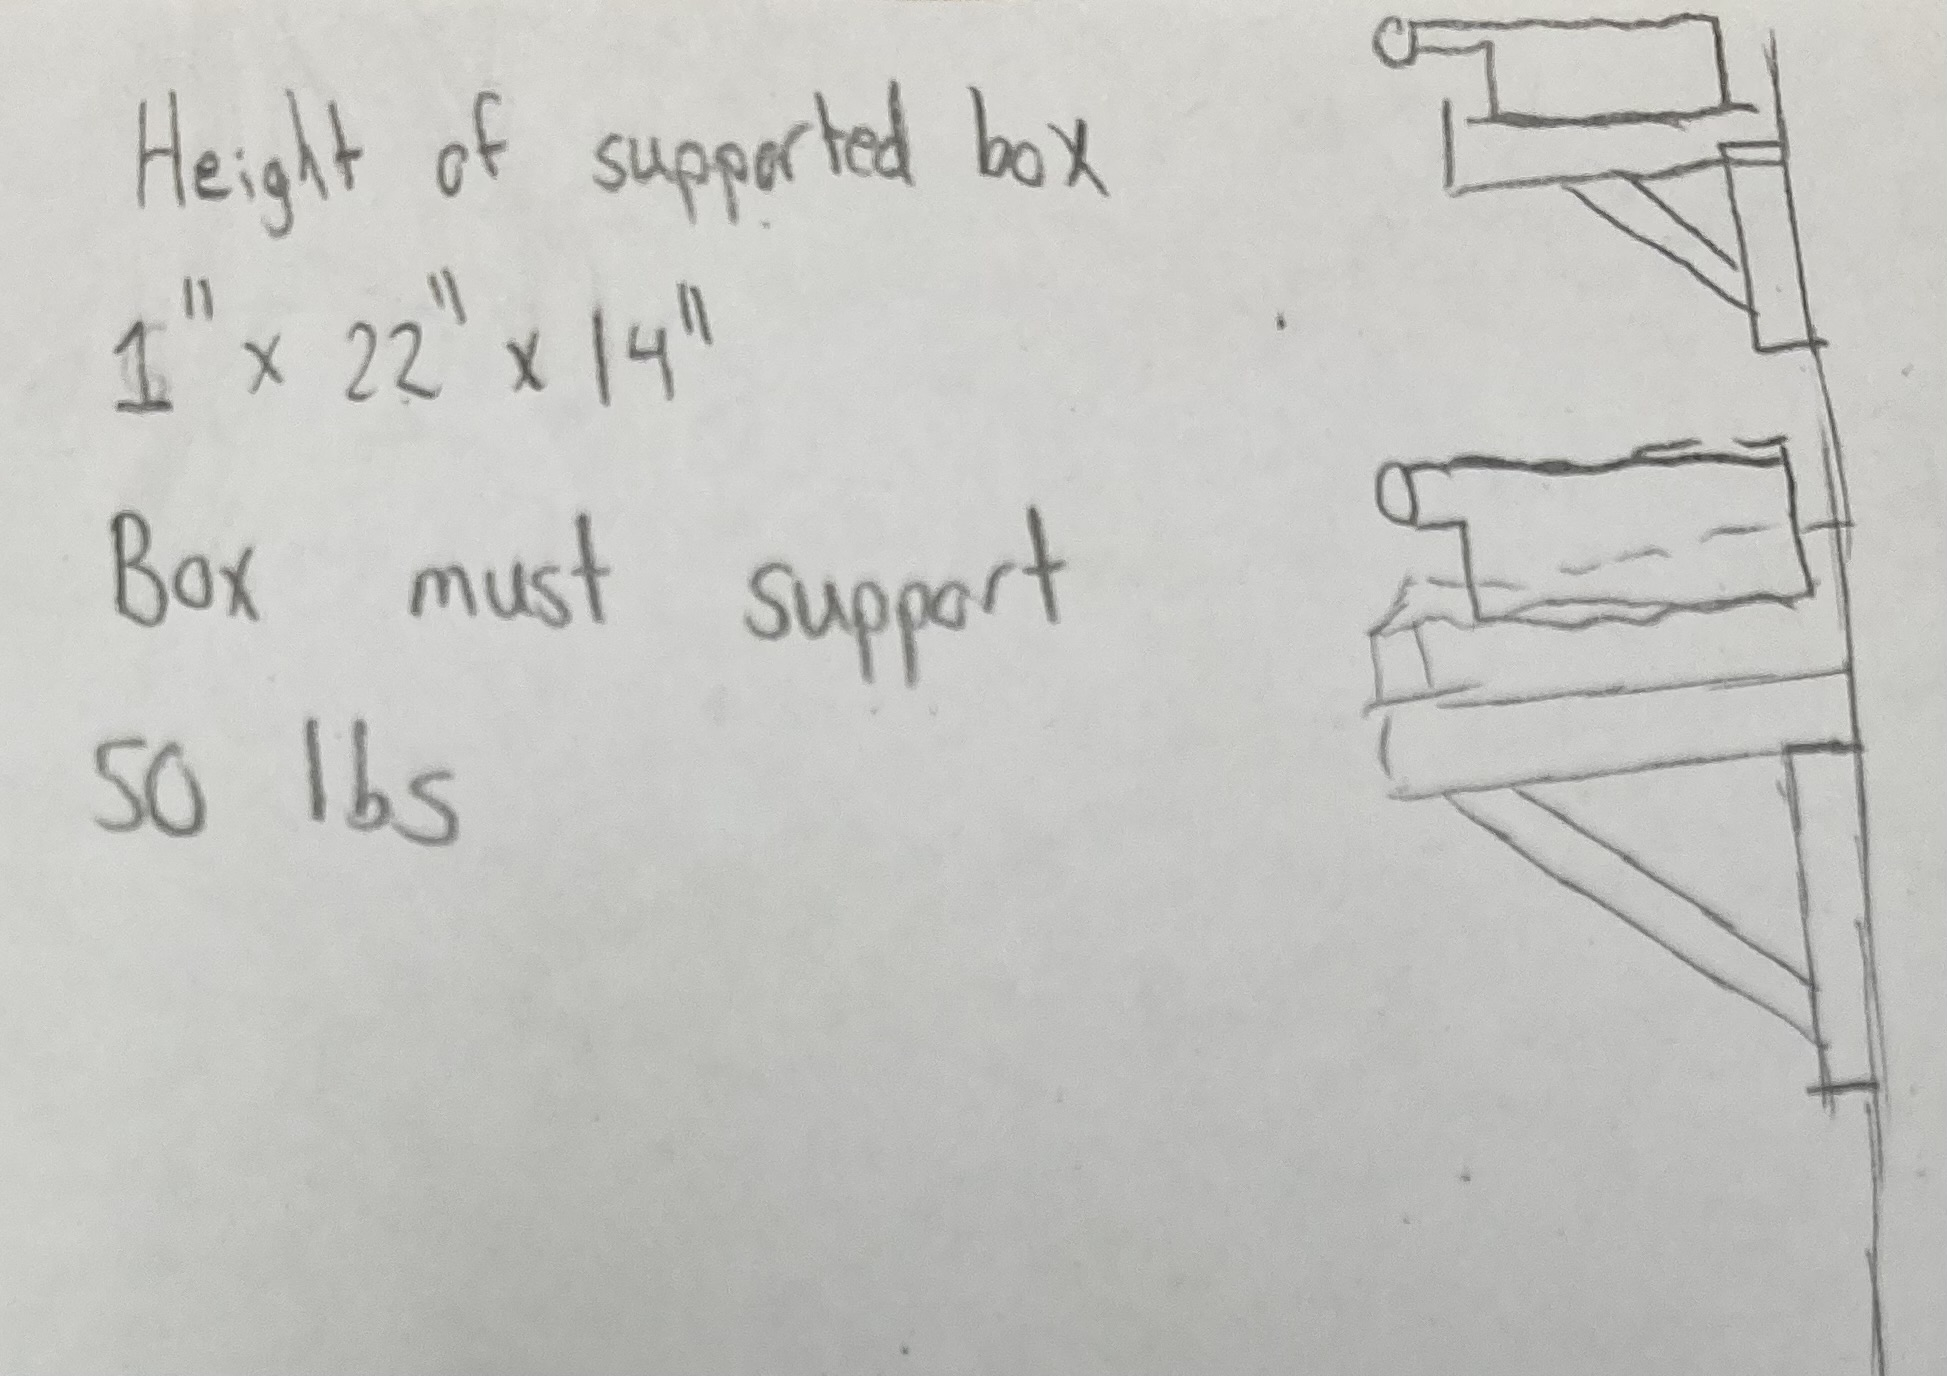 Height of supported box
1" x 22" x 14"
Box must support
50 lbs